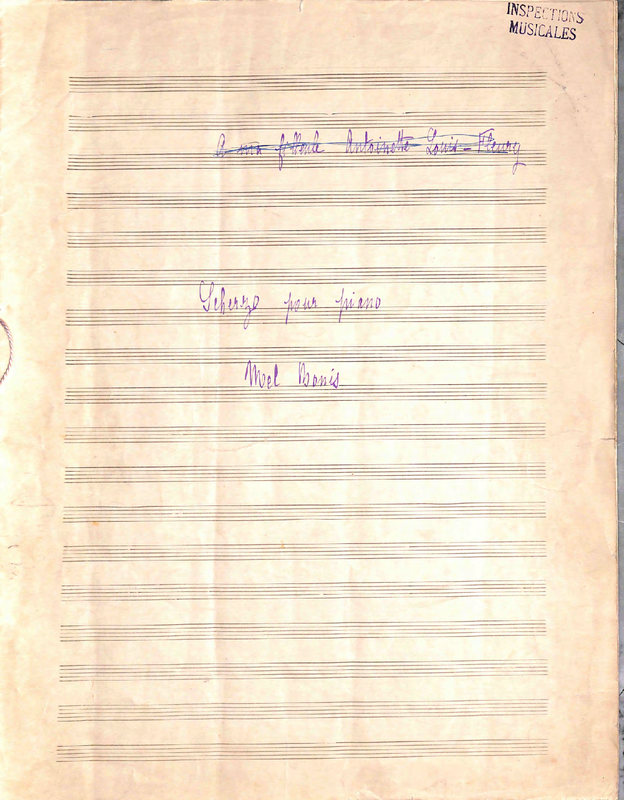 INSPECTIONS
MUSICALES
A mon filleule Antoinette Louis-Fleury
Scherzo pour piano
Mel Bonis